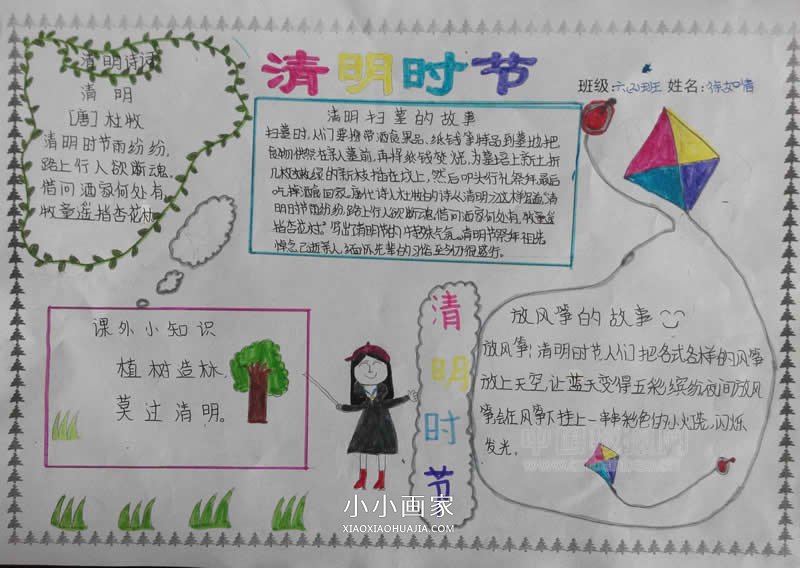 清明时节
班级:六(2)班 姓名:徐如情
清明诗词
清 明
[唐]杜牧
清明时节雨纷纷,
路上行人欲断魂。
借问酒家何处有,
牧童遥指杏花村。
清明扫墓的故事
扫墓时,人们要携带酒食果品、纸钱等物品到墓地,把
食物供祭在亲人墓前,再将纸钱焚烧,为坟墓上新土,折
几枝嫩绿的新枝插在坟上,然后叩头行礼祭拜,最后
吃掉酒食回家。唐代诗人杜牧的诗《清明》这样写道:"清
明时节雨纷纷,路上行人欲断魂。借问酒家何处有,牧童遥
指杏花村。"写出了清明节的特殊气氛。清明节祭拜祖先
悼念已逝亲人,缅怀先辈的习俗至今仍很盛行。
课外小知识
植树造林,
莫过清明。
清
明
时
节
放风筝的故事
放风筝:清明时节人们把各式各样的风筝
放上天空,让蓝天变得五彩缤纷夜间放风
筝会在风筝下挂上一串串彩色的小灯,闪烁
发光。
小小画家
XIAOXIAOHUAJIA.COM